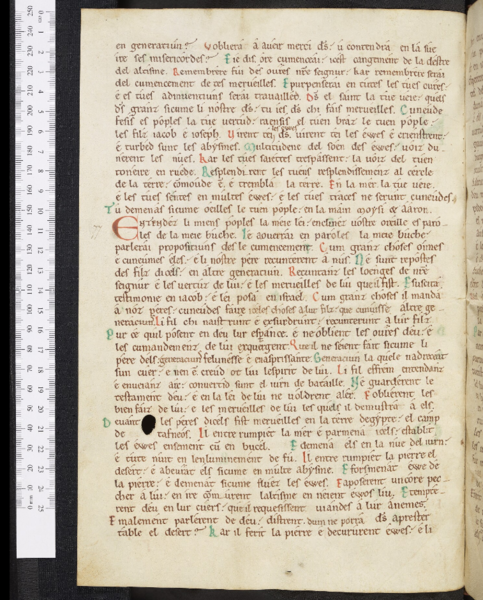 en generaciun? u obliera a aveir merci ds: u contendra en la sue
ire ses misericordes? E ie dis ore cumencai: icest cangement de la destre
del altisme. Remembrere fui des ovres nre seignur: kar remembrere serai
del cumencement de tes merveilles. E purpenserai en tutes les tues ovres:
e es tues adinventiuns serai travaillet. Ds el saint la tue veie: quels
ds granz sicume li nostre ds: tu ies ds chi fais merveilles. Cuneude
fesis es poples la tue vertud: raensis el tuen braz le tuen pople:
les filz iacob e ioseph. Virent tei les ewes ds, virent tei les ewes: e criens­trent:
e turbed sunt les abysmes. Multitudine del soen des ewes: voiz du-
nerent les nues. Kar les tues saettes trespassent: la voiz del tuen
toneire en ruede. Resplendirent les tuens resplendissemenz al cercle
de la terre: comoude e e trembla la terre. En la mer la tue veie:
e les tues sentes en multes ewes: e les tues traces ne serunt cuneudes.
Tu demenas sicume oeilles le tuen pople: en la main moysi e aaron.
Entendez li mens poples la meie lei: enclinez vostre oreille es paro-
les de la meie buche. Ie aoverai en paroles la meie buche:
parlerai proposiciuns des le cumencement. Cum granz choses oimes
e cuneumes eles: e li nostre pere recunterent a nus. Ne sunt repostes
des filz dicels: en altre generaciun. Recuntanz les loenges de nre
seignur e les vertuz de lui: e les merveilles de lui que il fist. E suscita
testimonie en iacob: e lei posa en israel. Cum granz choses il manda
a noz peres: cuneudes faire iceles choses a lur filz: que cunuisse altre ge-
neraciun. Li fil chi naistrunt e exsurdrunt: recunterunt a lur filz.
Pur ce quil posent en deu lur esperance: e ne oblient les ovres deu: e
les cumandemenz de lui exquergent. Que il ne seient fait sicume li
pere dels: generaciun felunesse e enasprissante. Generaciun la quele nadrecat
sun cuer: e nen e creud ot lui lespirit de lui. Li fil effrem entendanz
e enveianz arc: convertid sunt el jurn de bataille. Ne guarderent le
testament deu: e en la lei de lui ne voldrent aler. E oblierent les
bienfaiz de lui: e les merveilles de lui les quels il demustra a els.
Devant les peres dicels fist merveilles en la terre degypte: el camp
de tafneos. Il entrerumpiet la mer e parmena icels: establit
les ewes ensement cum en bucel. E demena els en la nue del jurn:
e tute nuit en lenluminement de fu. Il entrerumpiet la pierre el
desert: e abevrat els sicume en multe abysme. E forsmenat ewe de
la pierre: e demenat sicume fluez les ewes. E aposerent uncore pec-
cher a lui: en ire commurent laltisme en neient ewos liu. E tempte-
rent deu en lur cuers: que il requesissent viandes a lur anemes.
E malement parlerent de deu: distrent, dum ne porra ds aprester
table el desert? Kar il ferit la pierre e decururent ewes: e li